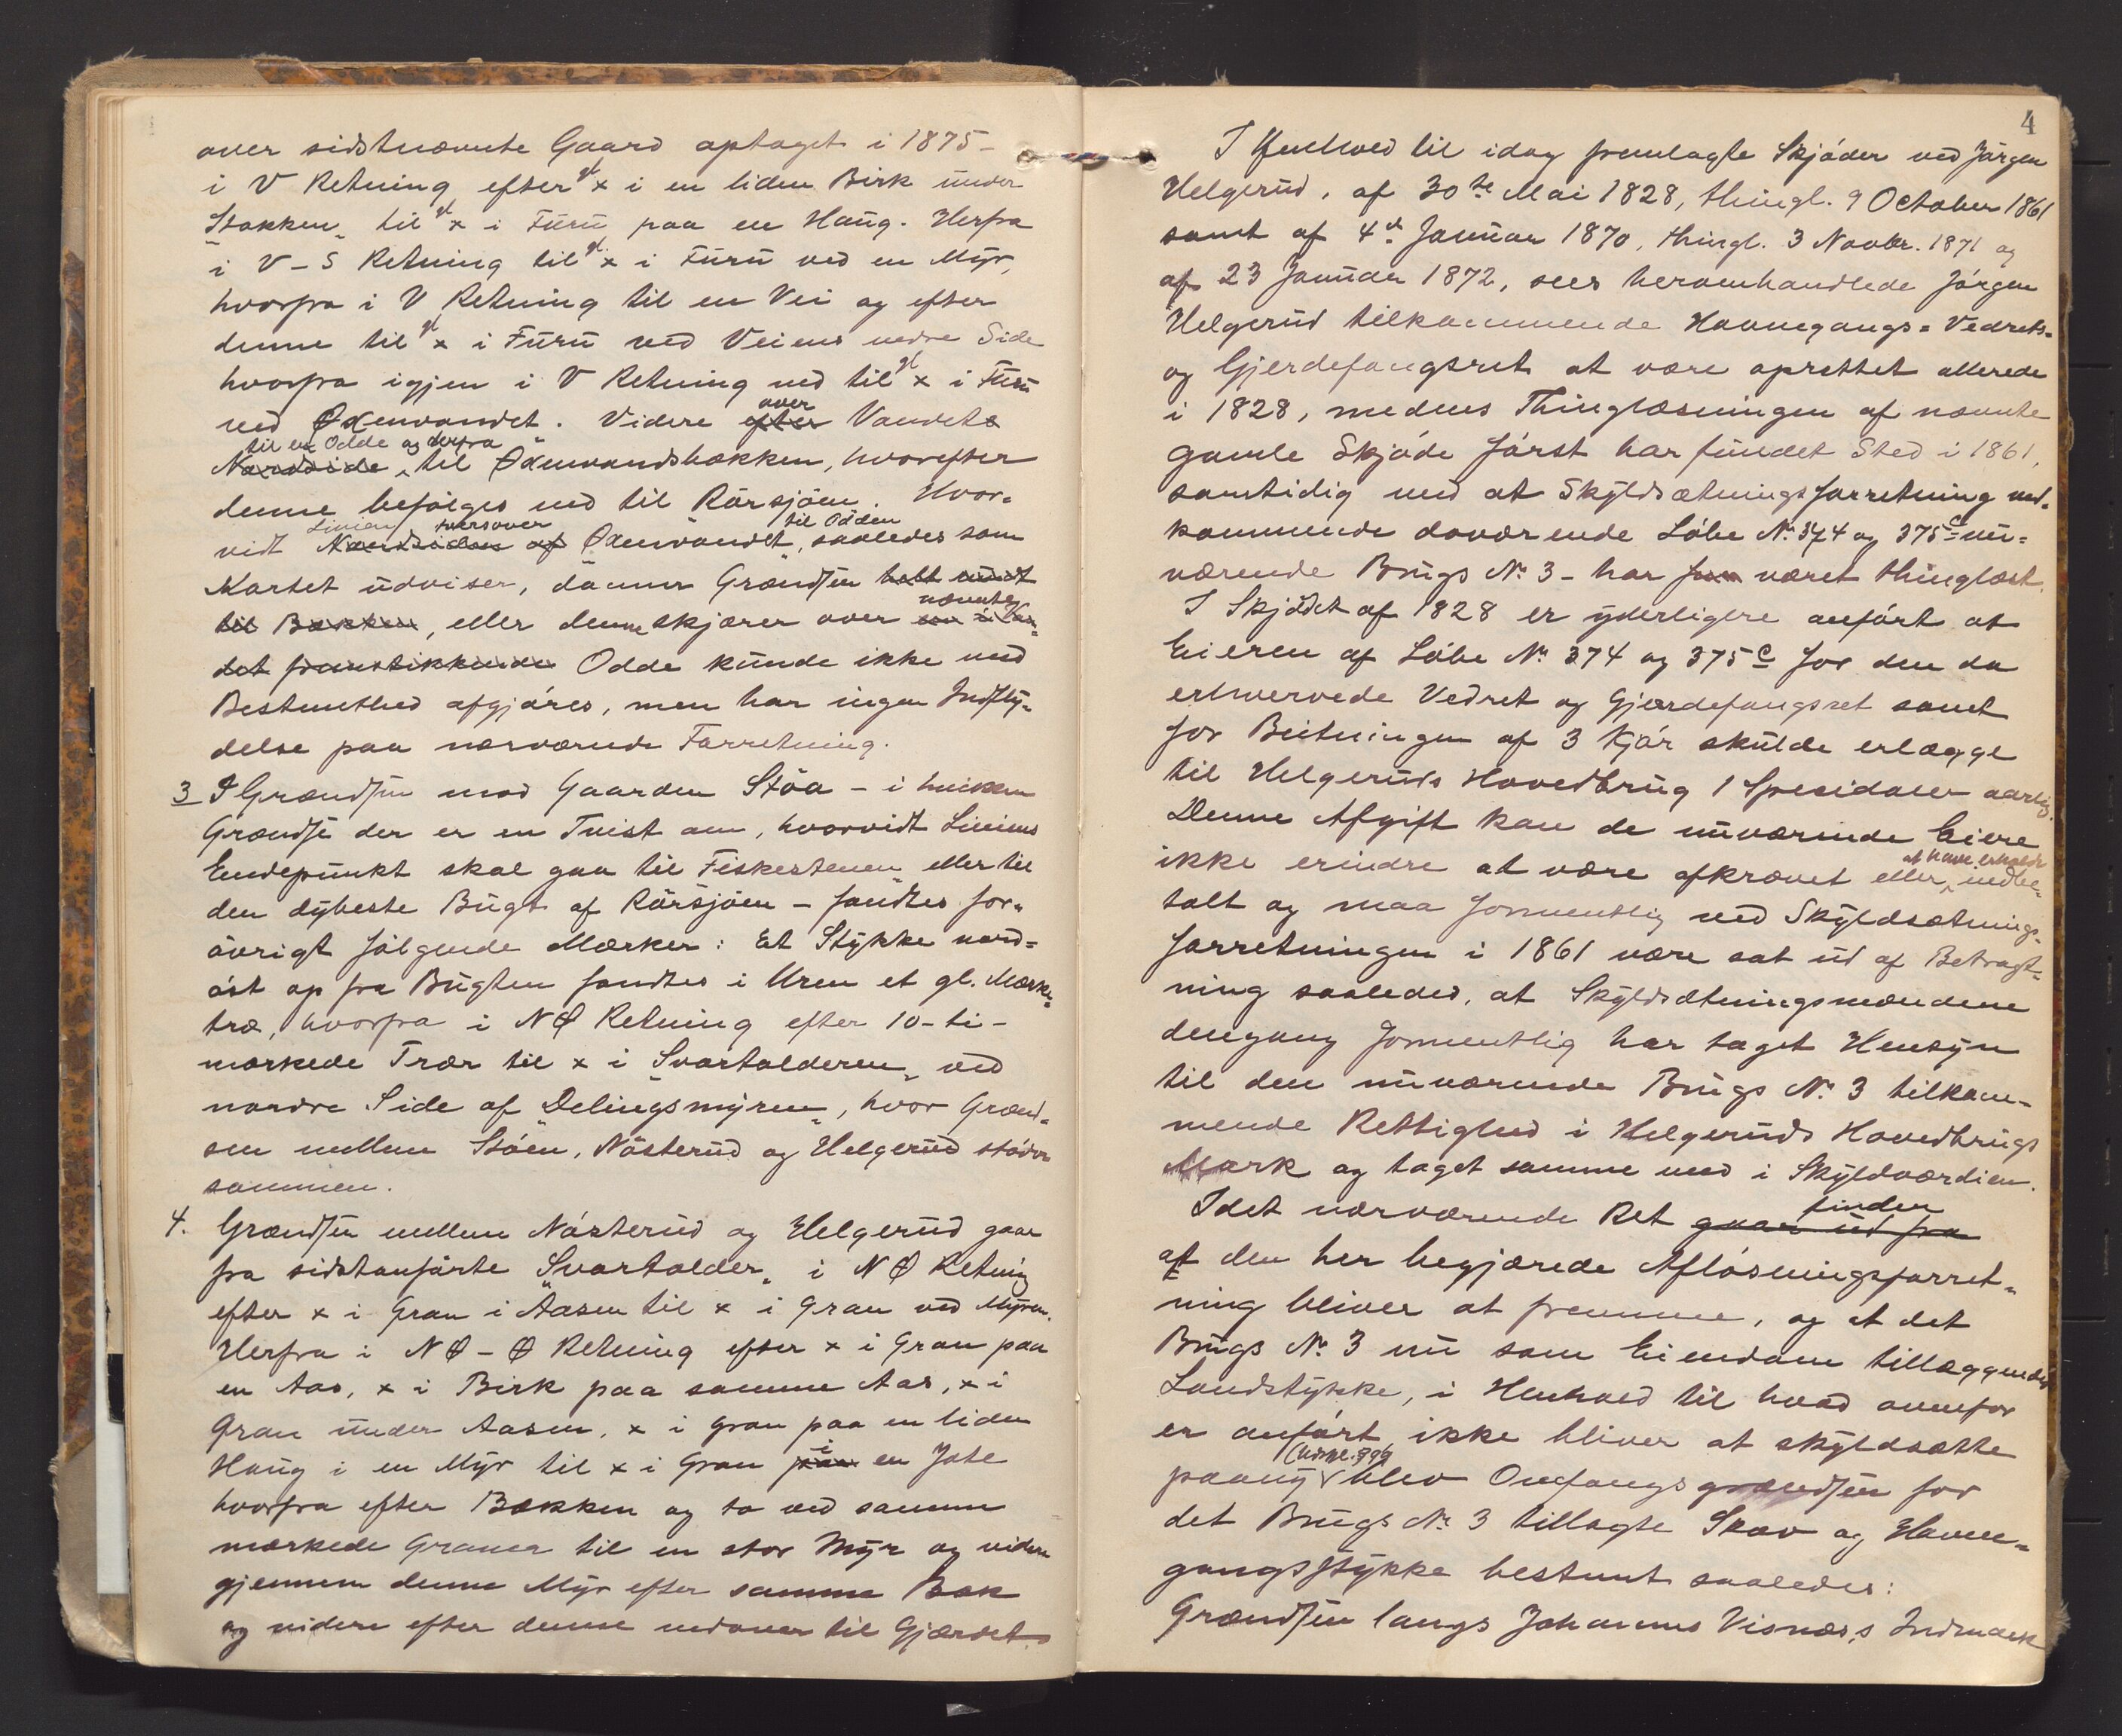 over sidstnævnte Gaard optaget i 1875 –
i V Retning efter gl x i en liden Birk under
"Stokken" til gl x i Furu paa en Haug. Herfra
i V–S Retning til gl. x i Furu ved en Myr,
hvorfra i V Retning til en Vei og efter
denne til gl x i Furu ved Veiens nedre Side
hvorfra igjen i V Retning ned til gl x i Furu
ved Oxenvandet. Videre efter over Vandets
Nordside til en Odde og derfra til Oxenvandsbækken, hvorefter
denne befølges ned til Rørsjøen. Hvor=
vidt Linien Nordsiden af tversover Oxenvandet til Odden, saaledes som
Kartet udviser, danner Grændsen helt rundt
til Bækken, eller denne skjærer over en i Van= nævnte
det fremstikkende Odde kunde ikke med
Bestemthed afgjøres, men har ingen Indfly=
delse paa nærværende Forretning.
3 I Grændsen mod Gaarden Støa – i hvilken
Grændse der er en Tvist om, hvorvidt Liniens
Endepunkt skal gaa til "Fiskestenen" eller til
den dybeste Bugt af Rørsjøen – fandtes for=
øvrigt følgende Mærker: Et Stykke nord=
øst op fra Bugten fandtes i Uren et gl. Mærke=
træ, hvorfra i NØ Retning efter 10 – ti –
mærkede Trær til x i "Svartalderen" ved
nordre Side af "Delingsmyren", hvor Grænd=
sen mellem Støen, Nøsterud og Helgerud støder
sammen.
4. Grændsen mellem Nøsterud og Helgerud gaar
fra sidstanførte "Svartalder" i NØ Retning
efter x i Gran i Aasen til x i Gran ved Myren.
Herfra i NØ–Ø Retning efter x i Gran paa
en Aas, x i Birk paa samme Aas, x i
Gran under Aasen, x i Gran paa en liden
Haug i en Myr til x i Gran paa i en Jote
hvorfra efter Bækken og to ved samme
mærkede Graner til en stor Myr og videre
gjennem denne Myr efter samme Bæk
og videre efter denne nedover til Gjærdet.
4
I Henhold til idag fremlagte Skjøder ved Jørgen
Helgerud, af 30te Mai 1828, thingl. 9 October 1861
samt af 4de Januar 1870, thingl. 3 Novbr. 1871 og
af 23 Januar 1872, sees heromhandlede Jørgen
Helgerud tilkommende Havnegangs= Vedrets=
og Gjerdefangsret at være oprettet allerede
i 1828, medens Thinglæsningen af nævnte
gamle Skjøde først har fundet Sted i 1861,
samtidig med at Skyldsætningsforretning ved=
kommende daværende Løbe No 374 og 375c – nu=
værende Brugs No 3 – har været thinglæst.
I Skjødet af 1828 er yderligere anført at
Eieren af Løbe No 374 og 375c for den da
erhvervede Vedret og Gjærdefangsret samt
for Beitningen af 3 Kjør skulde erlægge
til Helgeruds Hovedbrug 1 Specidaler aarlig.
Denne Afgift kan de nuværende Eiere
ikke erindre at være afkrævet eller at have erholdt indbe=
talt og maa formentlig ved Skyldsætnings=
forretningen i 1861 være sat ud af Betragt=
ning saaledes, at Skyldsætningsmændene
dengang formentlig har taget Hensyn
til den nuværende Brugs No 3 tilkom=
mende Rettighed i Helgeruds Hovedbrugs
Mark og taget samme med i Skyldværdien.
Idet nærværende Ret gaar ud fra finder
at den her begjærede Afløsningsforret=
ning bliver at fremme, og at det
Brugs No 3 nu som Eiendom tillæggendes
Landstykke, i Henhold til hvad ovenfor
er anført ikke bliver at skyldsætte
paany blev Omfangsgrændsen for
det Brugs No 3 tillagte Skov og Havne=
gangsstykke bestemt saaledes:
Grændsen langs Johannes Visnæs,s Indmark